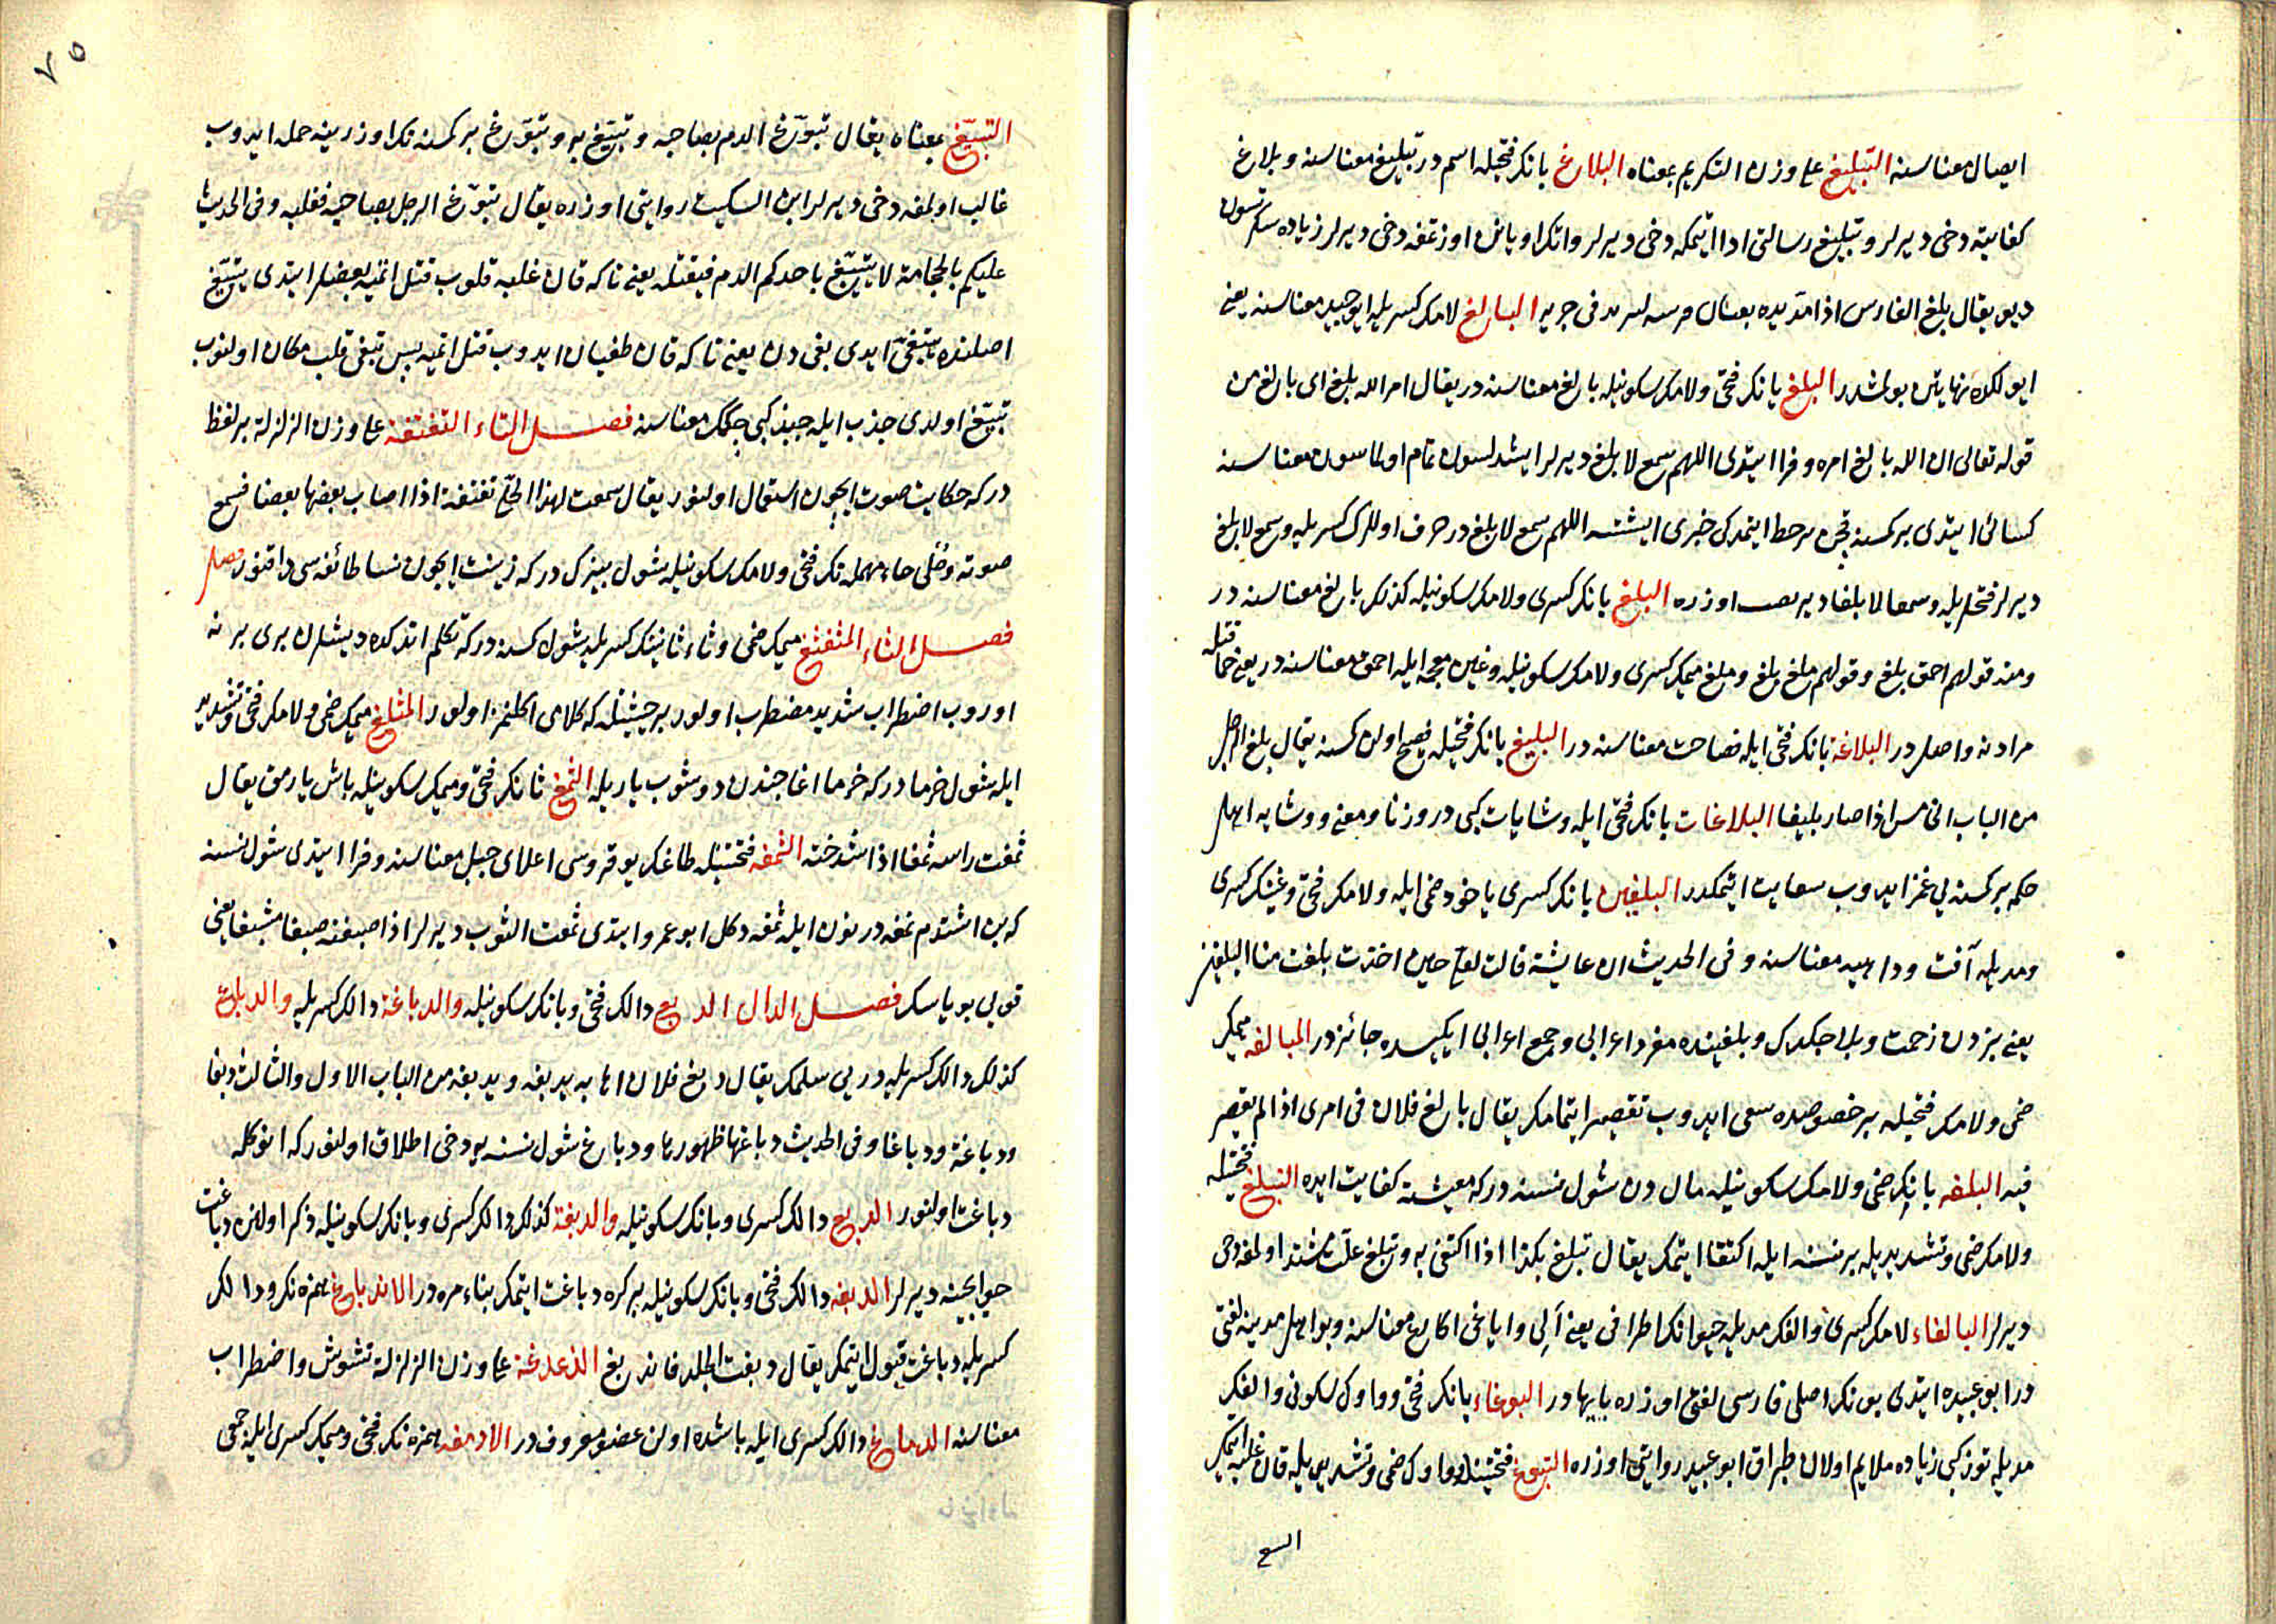 ايصال معناسنه التبليغ على وزن التكريم بمعناه البلاغ بانك فتحيله اسم در تبليغ معناسنه وبلاغ
كفايته دخى ديرلر وتبليغ رسالتى ادا ايتمكه دخى ديرلر واتك اوياش اوزتمغه دخى ديرلر زياده سكرتسون
ديو يقال بلغ الفارس اذا مد يده بعنان فرسه ليزيد فى جريه البالغ لامك كسريله ايوجيد معناسنه يعنى
ايولكده نهايتن بولمشدر البلغ بانك فتحى ولامك سكونيله بالغ معناسنه در يقال امر الله بلغ اى بالغ من
قوله تعالى ان الله بالغ امره وفرا ايتدى اللهم سمع لا بلغ ديرلر ايشدلسون تمام اولماسون معناسنه
كسائى ايتدى بر كمسنه قچن حظ ايتمدكى خبرى ايشتسه اللهم سمع لا بلغ در حرف اوللرك كسريله وسمع لا بلغ
ديرلر فتحله وسمعا لا بلغا دير نصب اوزره البلغ بانك كسرى ولامك سكونيله كذلك بالغ معناسنه در
ومنه قولهم احمق بلغ وقولهم ملغ بلغ وملغ ميمك كسرى ولامك سكونيله وغين معجمه ايله احمق معناسنه در يعنى حماقتله
مرادنه واصلدر البلاغة بانك فتحى ايله فصاحت معناسنه در البليغ بانك فتحيله فصيح اولن كسنه يقال بلغ الرجل
من الباب الخامس اذا صار بليغا البلاغات بانك فتحى ايله وشايات كبى در وزنا ومعنى ووشايه اهل
حكمه بر كمسنه يى غمز ايدوب سعايت ايتمكدر البلغين بانك كسرى ياخود ضمى ايله ولامك فتحى وغينك كسرى
ومديله آفت وداهيه معناسنه وفى الحديث ان عايشة قالت لعلى حين اخذت بلغت منا البلغين
يعنى بزدن زحمت وبلا چكدك وبلغينده مفرد اعرابى وجمع اعرابى ايكيسده جائزدر المبالغه ميمك
ضمى ولامك فتحيله بر خصوصده سعى ايدوب تقصير ايتمامك يقال بالغ فلان فى امرى اذا لم يقصر
فيه البلغه بانك ضمى ولامك سكونيله مالدن شول نسنه در كه معيشته كفايت ايده التبلغ فتحتيله
ولامك ضمى وتشديديله بر نسنه ايله اكتفا ايتمك يقال تبلغ بكذا اذا اكتفى به وتبلغ علت مشتد اولمغه دخى
ديرلر البالغاء لامك كسرى والفك مديله حيوانك اطرافى يعنى الى واياغى اكارع معناسنه وبو اهل مدينه لغتى
در ابو عبيده ايتدى بونك اصلى فارسى لغتى اوزره پايهادر البوغاء بانك فتحى وواوك سكونى والفك
مديله توز كبى زياده ملايم اولان طپراق ابو عبيد روايتى اوزره التبوغ فتحتيله وواوك ضمى وتشديديله قان غلبه ايتمك
التبيغ بمعناه يقال تبوغ الدم بصاحبه وتبيغ به وتبوغ بر كمسنه نك اوزرينه حمله ايدوب
غالب اولمغه دخى ديرلر ابن السكيت روايتى اوزره يقال تبوغ الرجل بصاحبه فغلبه وفى الحديث
عليكم بالحجامة لا يتبيغ باحدكم الدم فيقتله يعنى تاكه قان غلبه قلوب قتل اتميه بعضلر ايتدى يتبيغ
اصلنده يتبغى ايدى بغى دن يعنى تاكه قان طغيان ايدوب قتل اتميه پس تبغى قلب مكان اولنوب
تبيغ اولدى جذب ايله جبذ كبى چكمك معناسنه فصل التاء التغتغة على وزن الزلزلة بر لفظ
در كه حكايت صوت ايچون استعمال اولنور يقال سمعت لهذا الحلى تغتغة اذا اصاب بعضها بعضا فسمع
صوته وحلى حاء مهمله نك فتحى ولامك سكونيله شول بيزكدر كه زينت ايچون نسا طائفه سى داقنور
فصل الثاء المثغثغ ميمك ضمى وثاء ثانينك كسريله شول كسنه در كه تكلم اتدكده ديشلرن برى برنه
اوروب اضطراب شديد مضطرب اولور بر حيثيتله كه كلامى اكلنمز اولور المثلغ ميمك ضمى ولامك فتحى وتشديد
ايله شول خرمادر كه خرما اغاجندن دوشوب ياريله الثمغ ثانك فتحى وميمك سكونيله باش يارمق يقال
ثمغت راسه ثمغا اذا شدخته الثمغه فتحتيله طاغك يوقروسى اعلاى جبل معناسنه وفرا ايتدى شول نسنه
كه بن اشتدم نمغه در نون ايله ثمغه دكل ابو عمرو ايتدى ثمغت الثوب ديرلر اذا صبغته صبغا مشبعا يعنى
قويى بوياسك فصل الدال الدبغ دالك فتحى وبانك سكونيله والدباغة دالك كسريله والدباغ
كذلك دالك كسريله درى سلمك يقال دبغ فلان اهابه يدبغه ويدبغه من الباب الاول والثالث دبغا
ودباغة ودباغا وفى الحديث دباغها طهورها ودباغ شول نسنه يه دخى اطلاق اولنور كه انوكله
دباغت اولنور الدبغ دالك كسرى وبانك سكونيله والدبغة كذلك دالك كسرى وبانك سكونيله ذكر اولنن دباغت
حوايجنه ديرلر الدبغه دالك فتحى وبانك سكونيله بر كره دباغت ايتمك بناء مره در الاندباغ همزه نك ودالك
كسريله دباغت قبول ايتمك يقال دبغت الجلد فاندبغ الدغدغة على وزن الزلزلة تشويش واضطراب
معناسنه الدماغ دالك كسرى ايله باشده اولن عضو معروفدر الادمغه همزه نك فتحى وميمك كسرى ايله جمعى